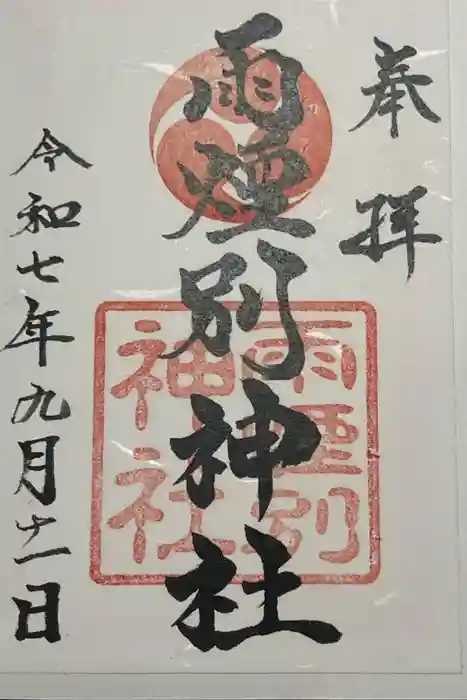 奉拝
雨煙別神社
雨煙別
神社
令和七年九月十一日